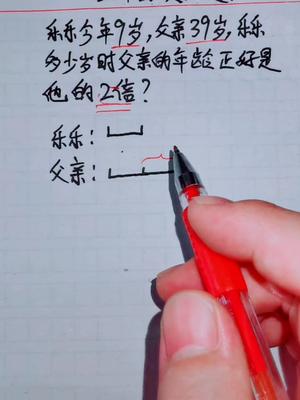 乐乐今年9岁,父亲39岁,乐乐
多少岁时父亲的年龄正好是
他的2倍?
乐乐:
父亲: